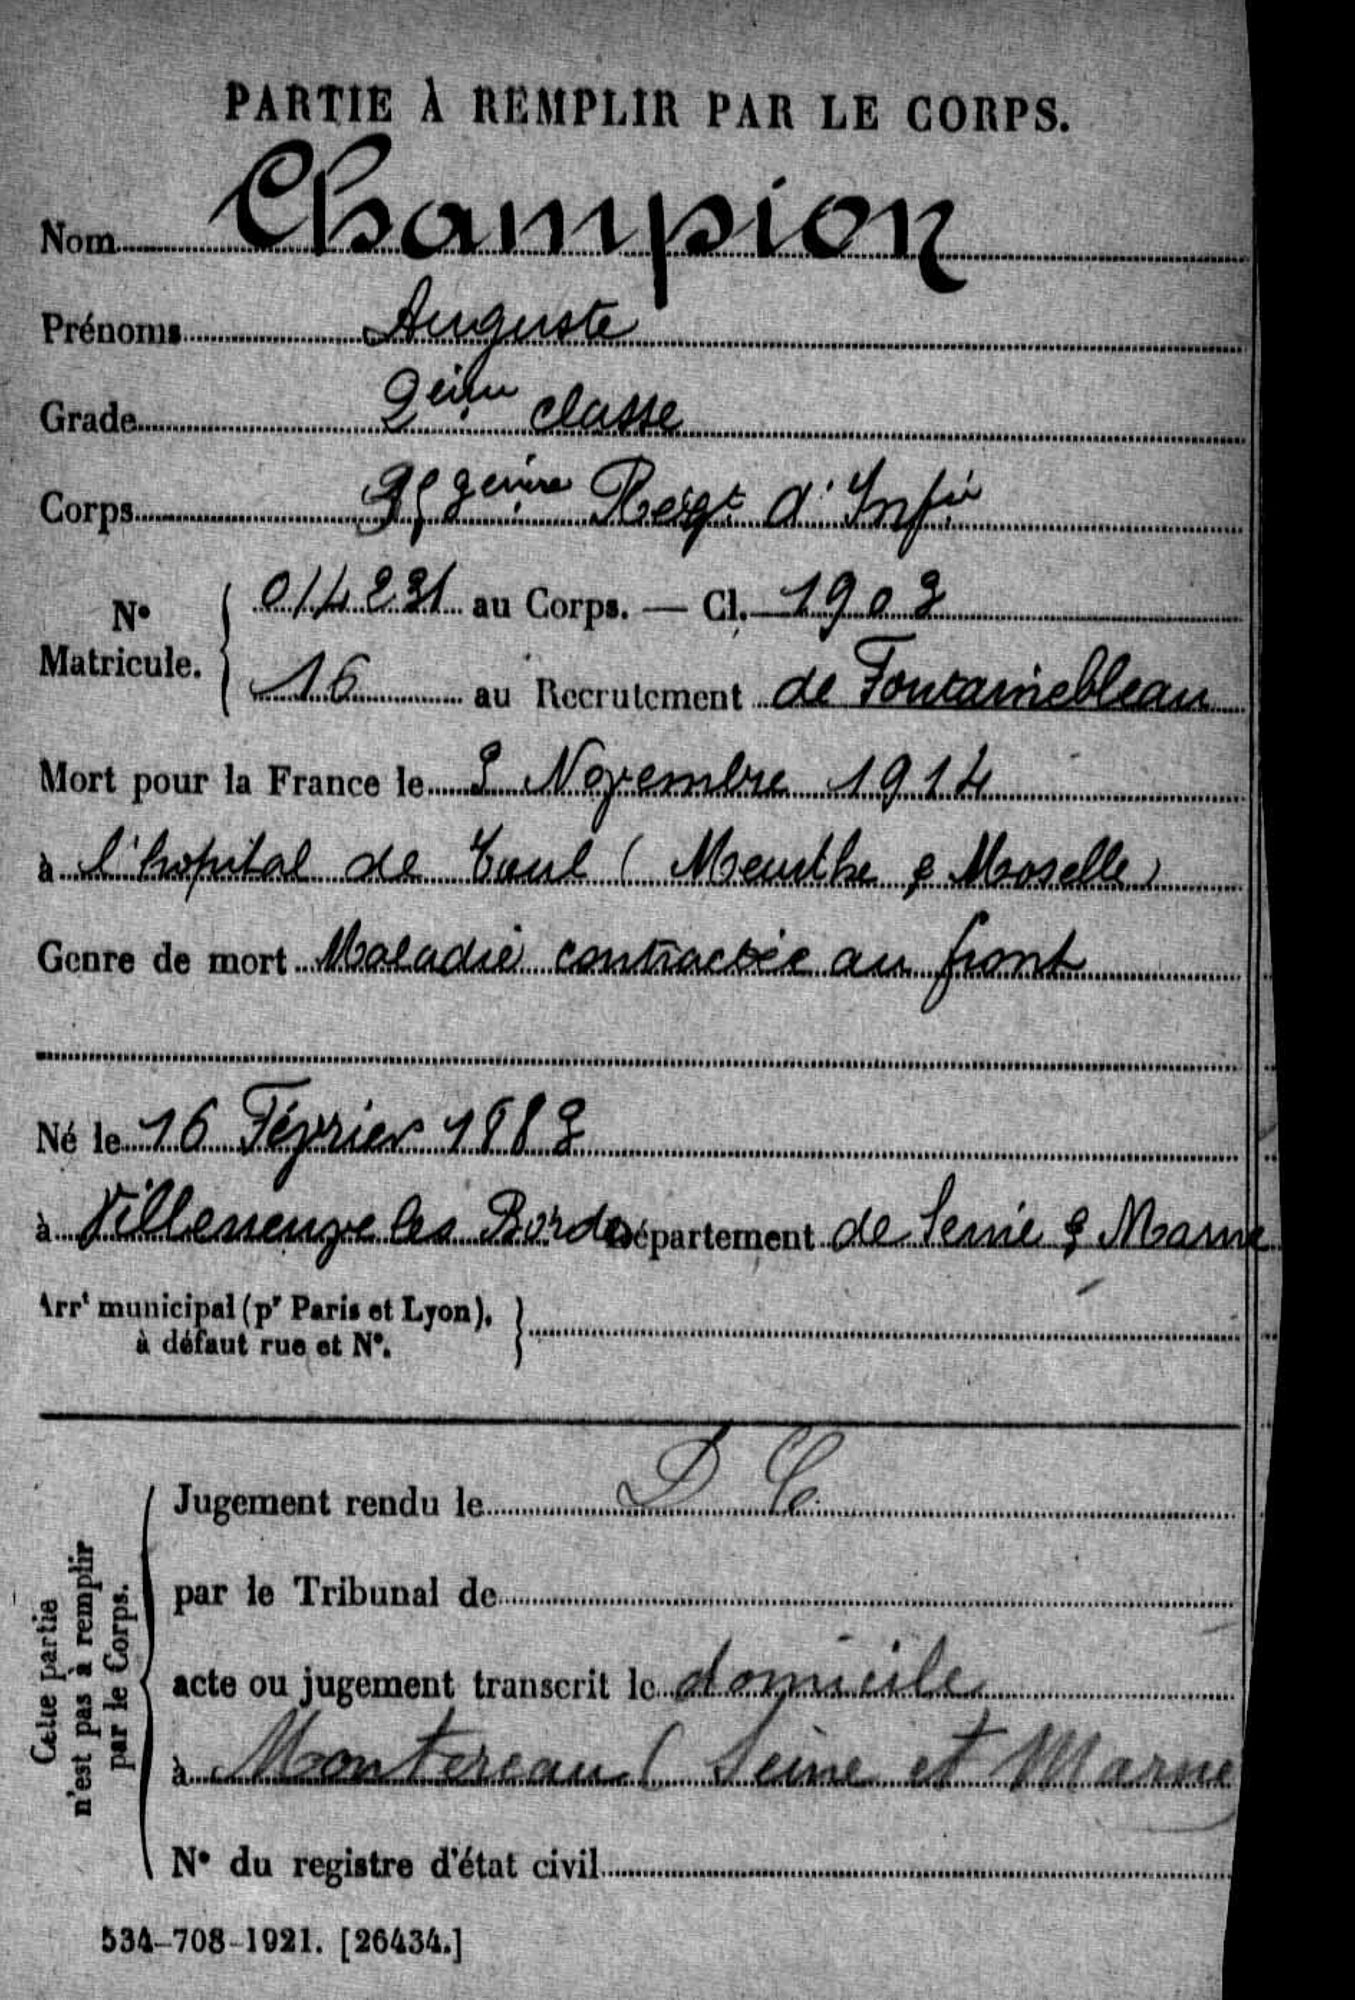 PARTIE À REMPLIR PAR LE CORPS.
Nom Champion
Prénoms Auguste
Grade 2eme classe
Corps 353eme Regt d'Infie
N° Matricule. 014231 au Corps. — Cl. 1903
16 au Recrutement de Fontainebleau
Mort pour la France le 3 Novembre 1914
à l'hopital de Toul (Meurthe & Moselle)
Genre de mort Maladie contractée au front
Né le 16 Février 1883
à Villeneuve les Bordes Département de Seine & Marne
Arrt municipal (pr Paris et Lyon), à défaut rue et N°.
Cette partie n'est pas à remplir par le Corps.
Jugement rendu le D C
par le Tribunal de
acte ou jugement transcrit le domicile
à Montereau (Seine et Marne
N° du registre d'état civil
534-708-1921. [26434.]